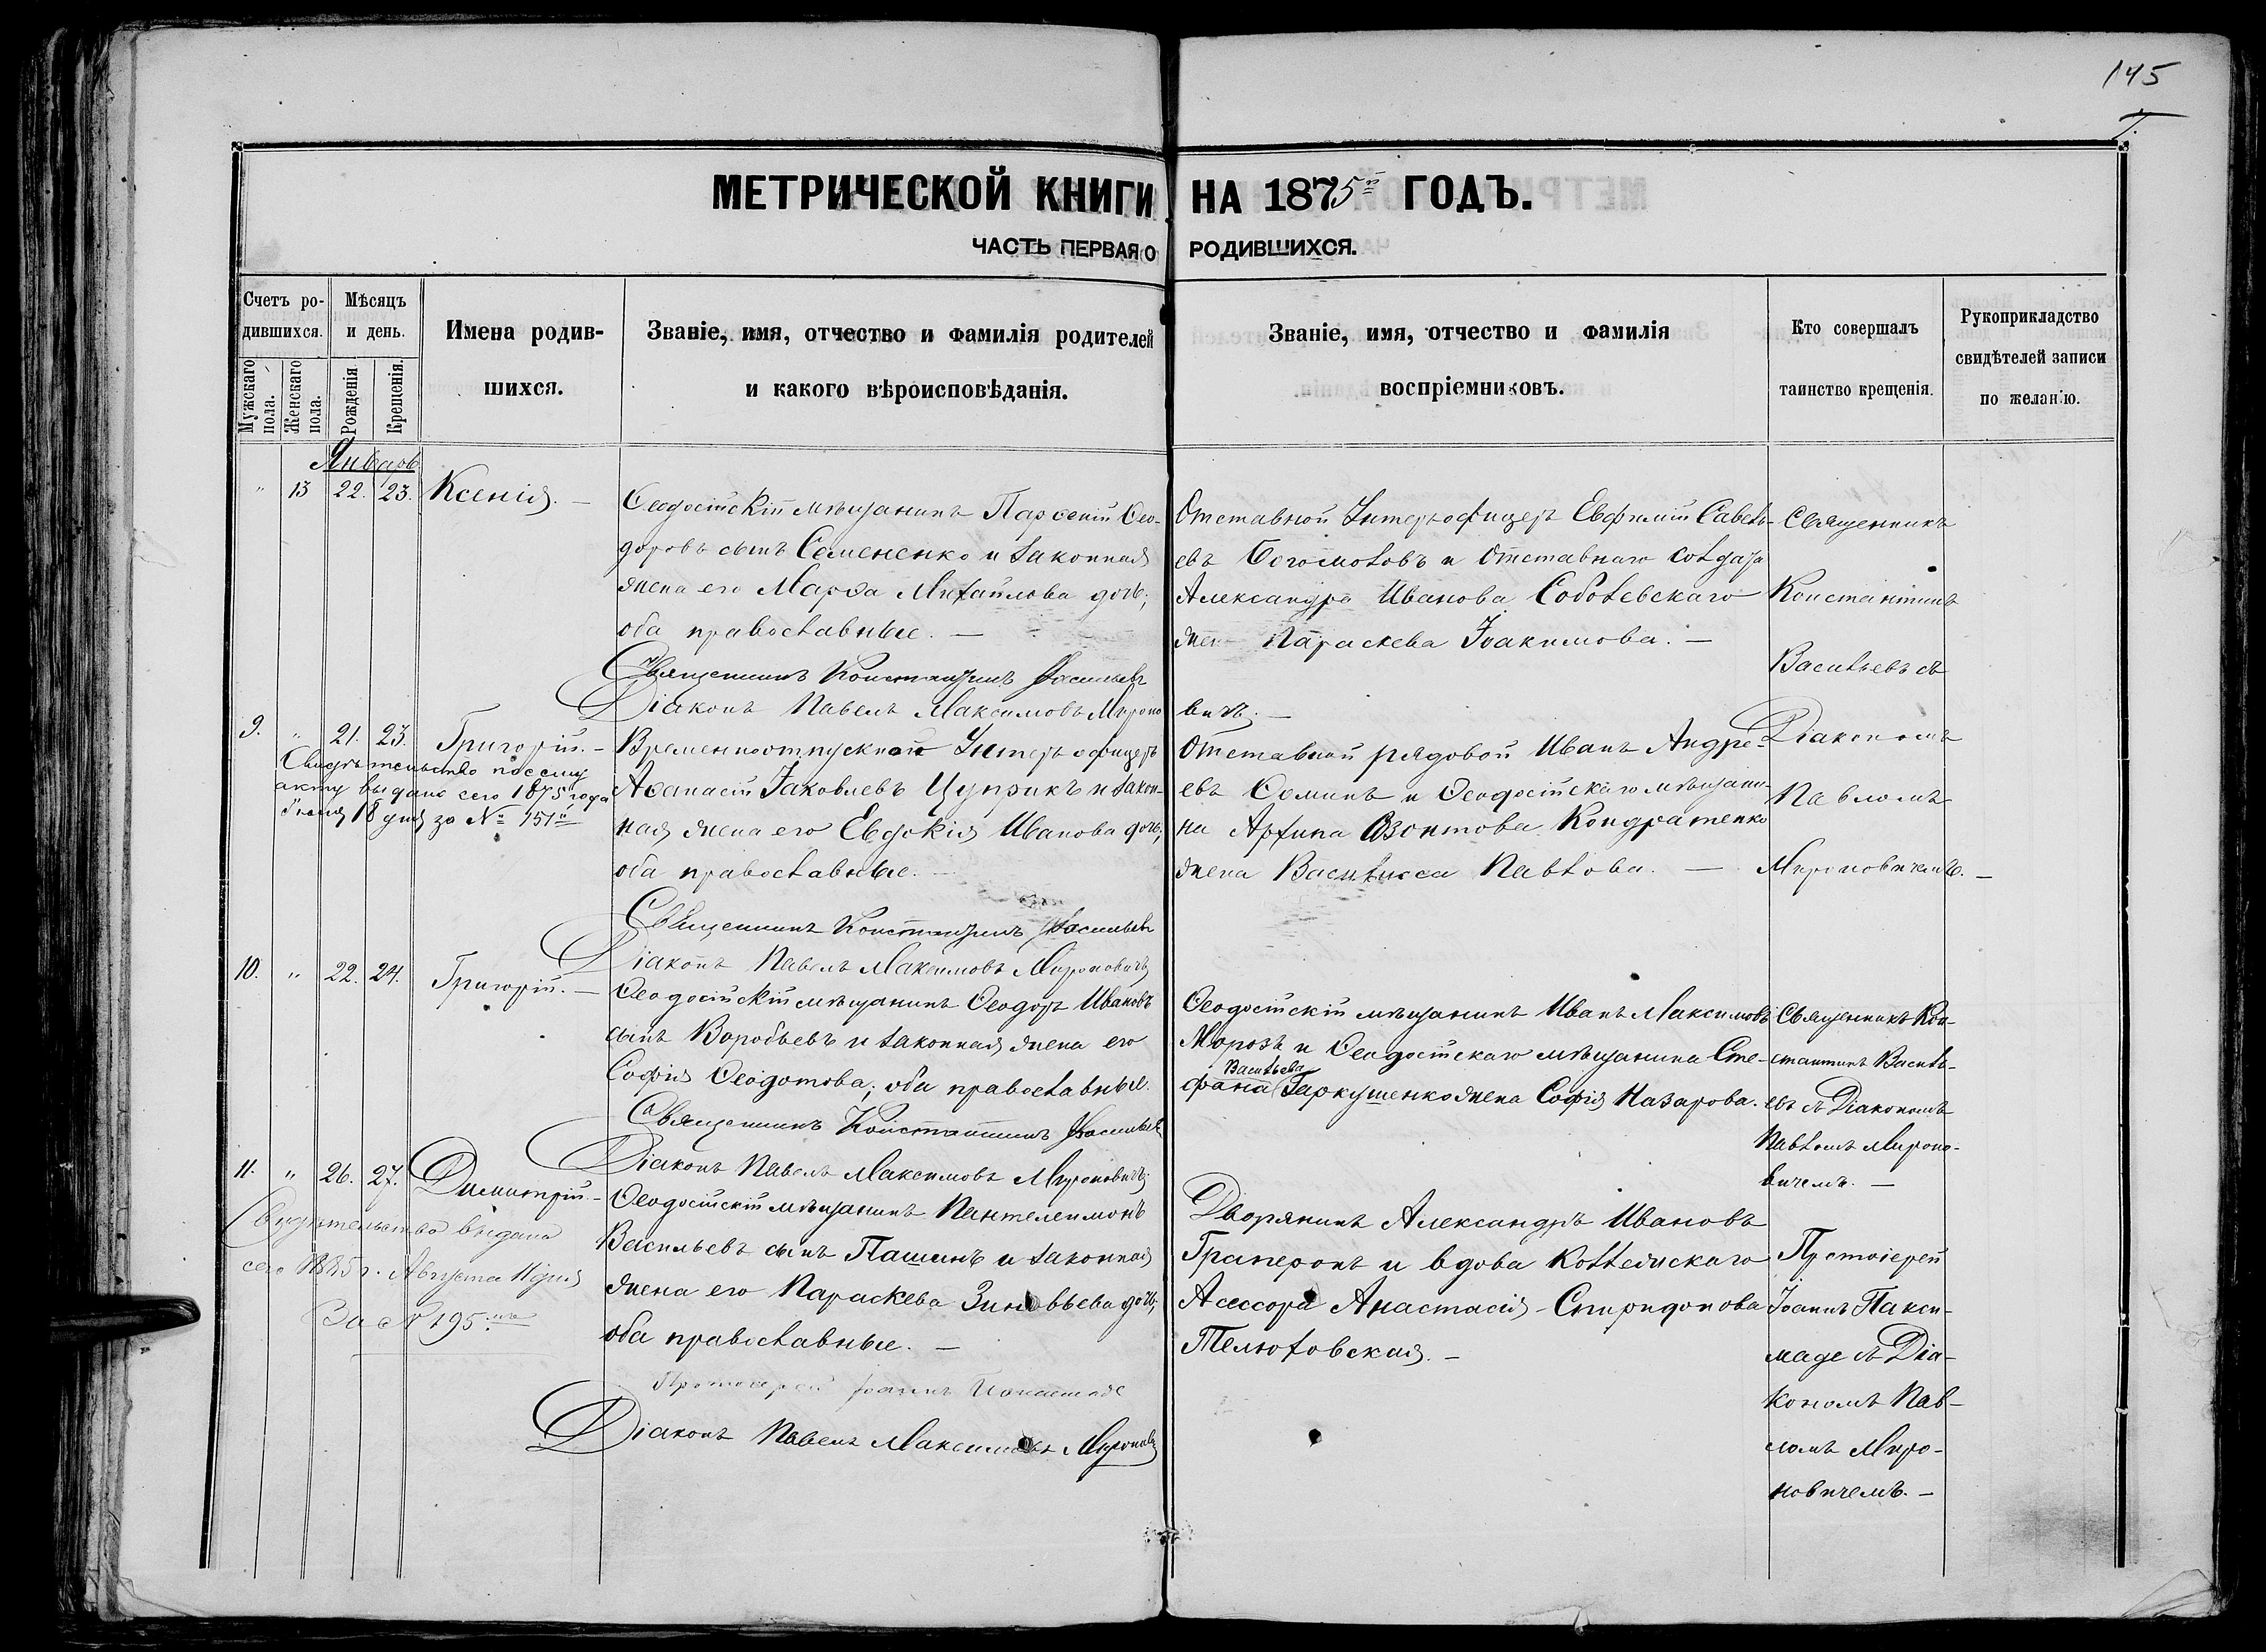 145
I.
МЕТРИЧЕСКОЙ КНИГИ НА 1875й ГОДЪ.
ЧАСТЬ ПЕРВАЯ О РОДИВШИХСЯ.
Счетъ ро-
дившихся.
Мужскаго пола.
Женскаго пола.
Мѣсяцъ
и день.
Рожденія
Крещенія.
Имена родив-
шихся.
Званіе, имя, отчество и фамилія родителей
и какого вѣроисповѣданія.
Званіе, имя, отчество и фамилія
воспріемниковъ.
Кто совершалъ
таинство крещенія.
Рукоприкладство
свидѣтелей записи
по желанію.
Январь
" 13 22. 23. Ксенія. —
Ѳеодосійскій мѣщанинъ Парѳеній Ѳео-
доровъ сынъ Семененко и законная
жена его Марѳа Михайлова дочь;
оба православные. —
Священникъ Константинъ Васильевъ
Діаконъ Павелъ Максимовъ Мироновичъ. —
Отставной Унтеръ офицеръ Евфимій Савель-
евъ Богомоловъ и отставнаго солдата
Александра Иванова Соболевскаго
жена Параскева Іоакимова. —
Священникъ
Константинъ
Васильевъ съ
Діакономъ
Павломъ
Мироновичемъ. —
9. " 21. 23. Григорій. —
Свидѣтельство по сему
акту выдано сего 1875 года
18 дня за № 151й
Временноотпускной Унтеръ офицеръ
Аѳанасій Іаковлевъ Цуприкъ и закон-
ная жена его Евдокія Иванова дочь;
оба православные. —
Священникъ Константинъ Васильевъ
Діаконъ Павелъ Максимовъ Мироновичъ
Отставной рядовой Иванъ Андре-
евъ Ѳоминъ и Ѳеодосійскаго мѣщани-
на Архипа Кондратенко
жена Василисса Павлова. —
10. " 22. 24. Григорій. —
Ѳеодосійскій мѣщанинъ Ѳеодоръ Ивановъ
сынъ Воробьевъ и законная жена его
Софія Ѳеодотова; оба православные.
Священникъ Константинъ Васильевъ
Діаконъ Павелъ Максимовъ Мироновичъ
Ѳеодосійскій мѣщанинъ Иванъ Максимовъ
Морозъ и Ѳеодосійскаго мѣщанина Сте-
Васильева
фана Гаркушенко жена Софія Назарова.
Священникъ Кон-
стантинъ Василь-
евъ съ Діакономъ
Павломъ Мироно-
вичемъ. —
11. " 26. 27. Димитрій. —
Свидѣтельство выдано
сего 1885 г. Августа 11 дня
За № 195
Ѳеодосійскій мѣщанинъ Пантелеимонъ
Васильевъ сынъ Пашинъ и законная
жена его Параскева Зиновьева дочь;
оба православные. —
Протоіерей Іоаннъ
Діаконъ Павелъ Максимовъ Мироновичъ
Дворянинъ Александръ Ивановъ
Граперонъ и вдова Коллежскаго
Асессора Анастасія Спиридонова
Телюховская. —
Протоіерей
Іоаннъ Пакси-
маде съ Діа-
кономъ Пав-
ломъ Миро-
новичемъ. —